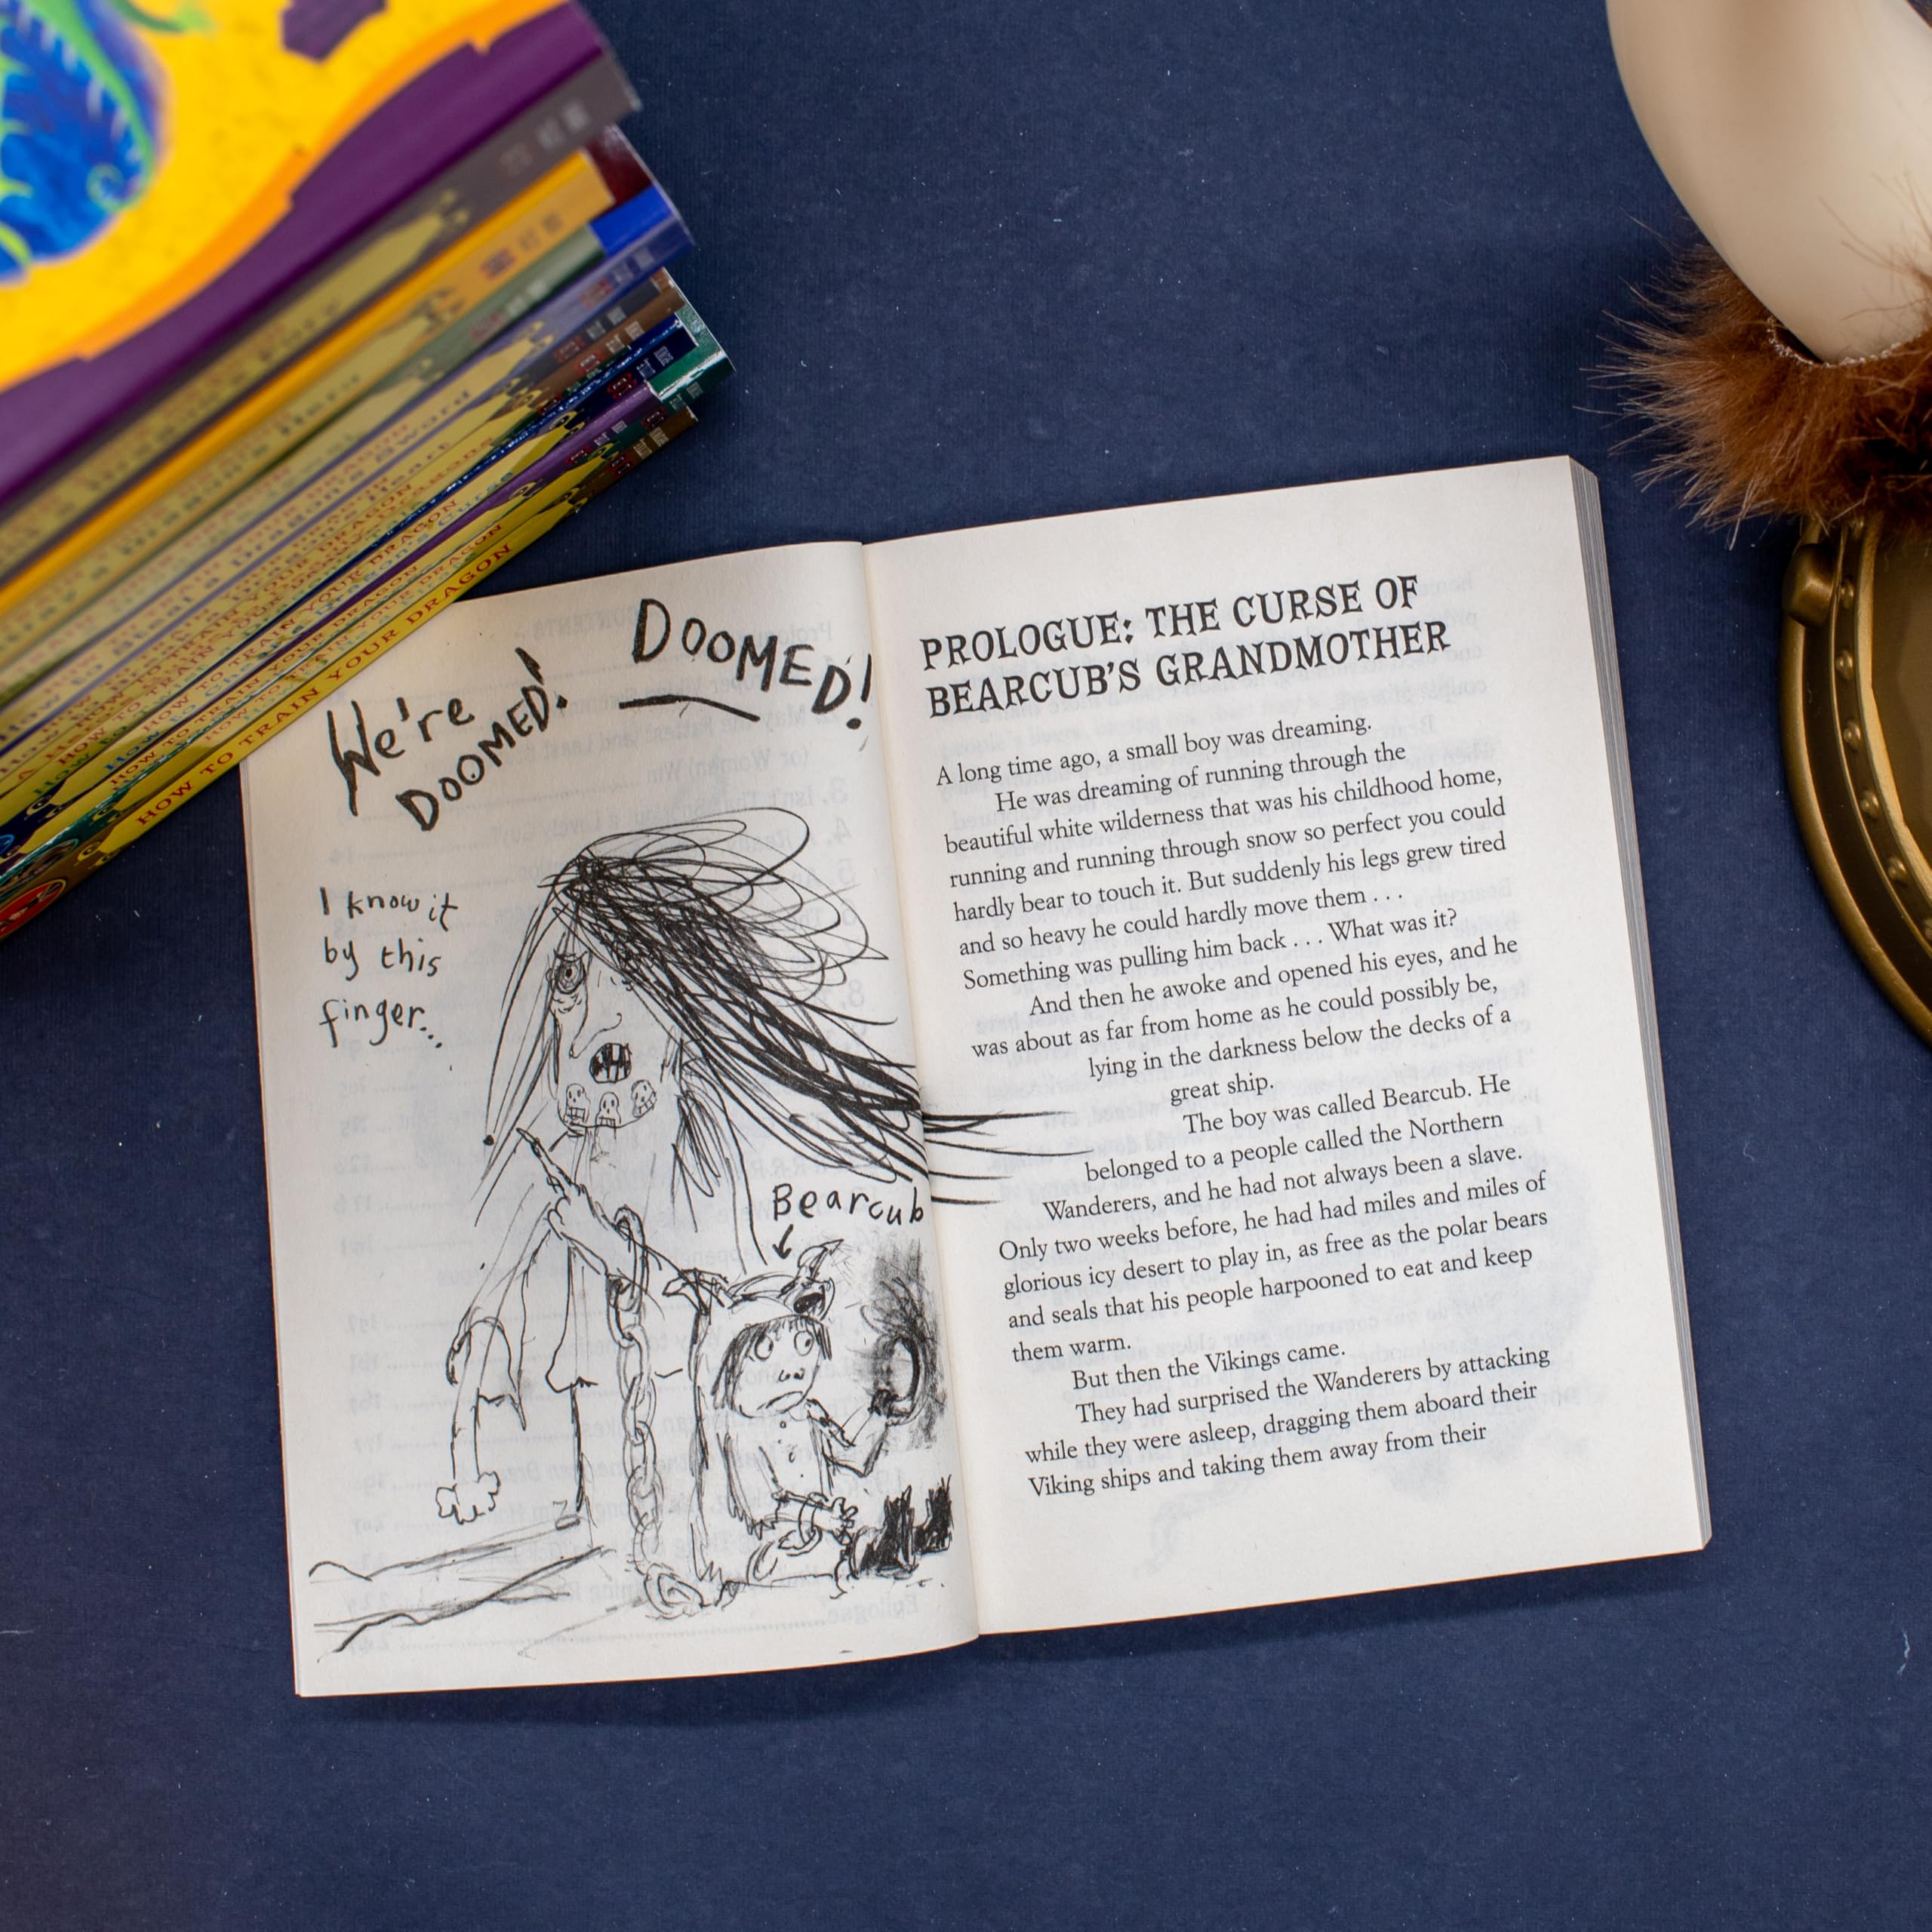 HOW TO TRAIN YOUR DRAGON
We're
DOOMED!
DOOMED!
I know it
by this
finger...
Bearcub
PROLOGUE: THE CURSE OF
BEARCUB'S GRANDMOTHER
A long time ago, a small boy was dreaming.
He was dreaming of running through the
beautiful white wilderness that was his childhood home,
running and running through snow so perfect you could
hardly bear to touch it. But suddenly his legs grew tired
and so heavy he could hardly move them . . .
Something was pulling him back . . . What was it?
And then he awoke and opened his eyes, and he
was about as far from home as he could possibly be,
lying in the darkness below the decks of a
great ship.
The boy was called Bearcub. He
belonged to a people called the Northern
Wanderers, and he had not always been a slave.
Only two weeks before, he had had miles and miles of
glorious icy desert to play in, as free as the polar bears
and seals that his people harpooned to eat and keep
them warm.
But then the Vikings came.
They had surprised the Wanderers by attacking
while they were asleep, dragging them aboard their
Viking ships and taking them away from their